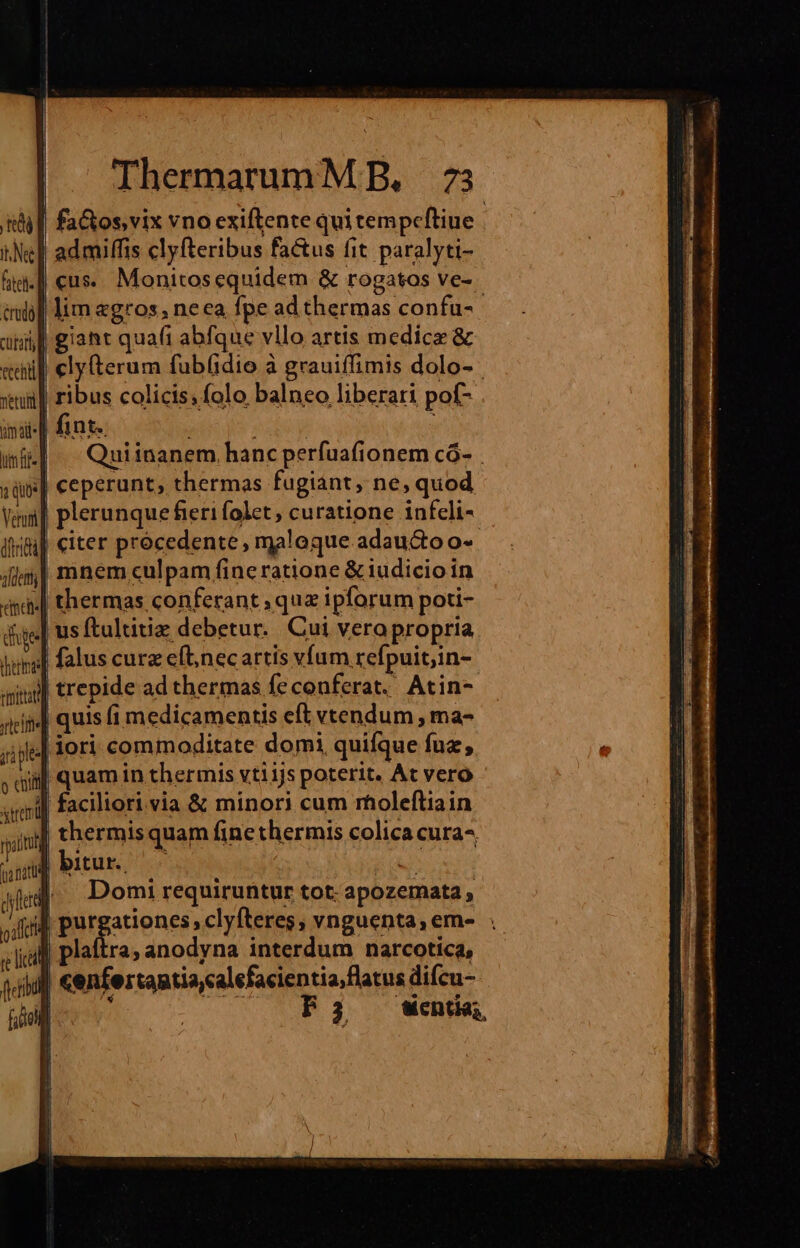 Thermarum M B. 73
factos, vix vno exiſtente qui tempeſtiue
admiſſis clyſteribus factus ſit paralyti-
cus. Monitos equidem & rogatos ve-
lim ægros, ne ea ſpe ad thermas confu-
giant quaſi abſque vllo artis medicæ &
clyſterum ſubſidio à grauiſſimis dolo-
ribus colicis, ſolo balneo liberari poſ-
ſint.
Qui inanem hanc perſuaſionem cō-
ceperunt, thermas fugiant, ne, quod
plerunque fieri ſolet, curatione infeli-
citer procedente, maloque adaucto o-
mnem culpam ſine ratione & iudicio in
thermas conferant, quæ ipſorum poti-
us ſtultitiæ debetur. Cui vero propria
ſalus curæ eſt, nec artis vſum reſpuit, in-
trepide ad thermas ſe conferat. At in-
quis ſi medicamentis eſt vtendum, ma-
iori commoditate domi quiſque ſuæ,
quam in thermis vti ijs poterit. At vero
faciliori via & minori cum moleſtia in
thermis quam ſine thermis colica cura-
bitur.
Domi requiruntur tot apozemata,
purgationes, clyſteres, vnguenta, em-
plaſtra, anodyna interdum narcotica,
confortantia, calefacientia, flatus diſcu-
F 3 tientia,